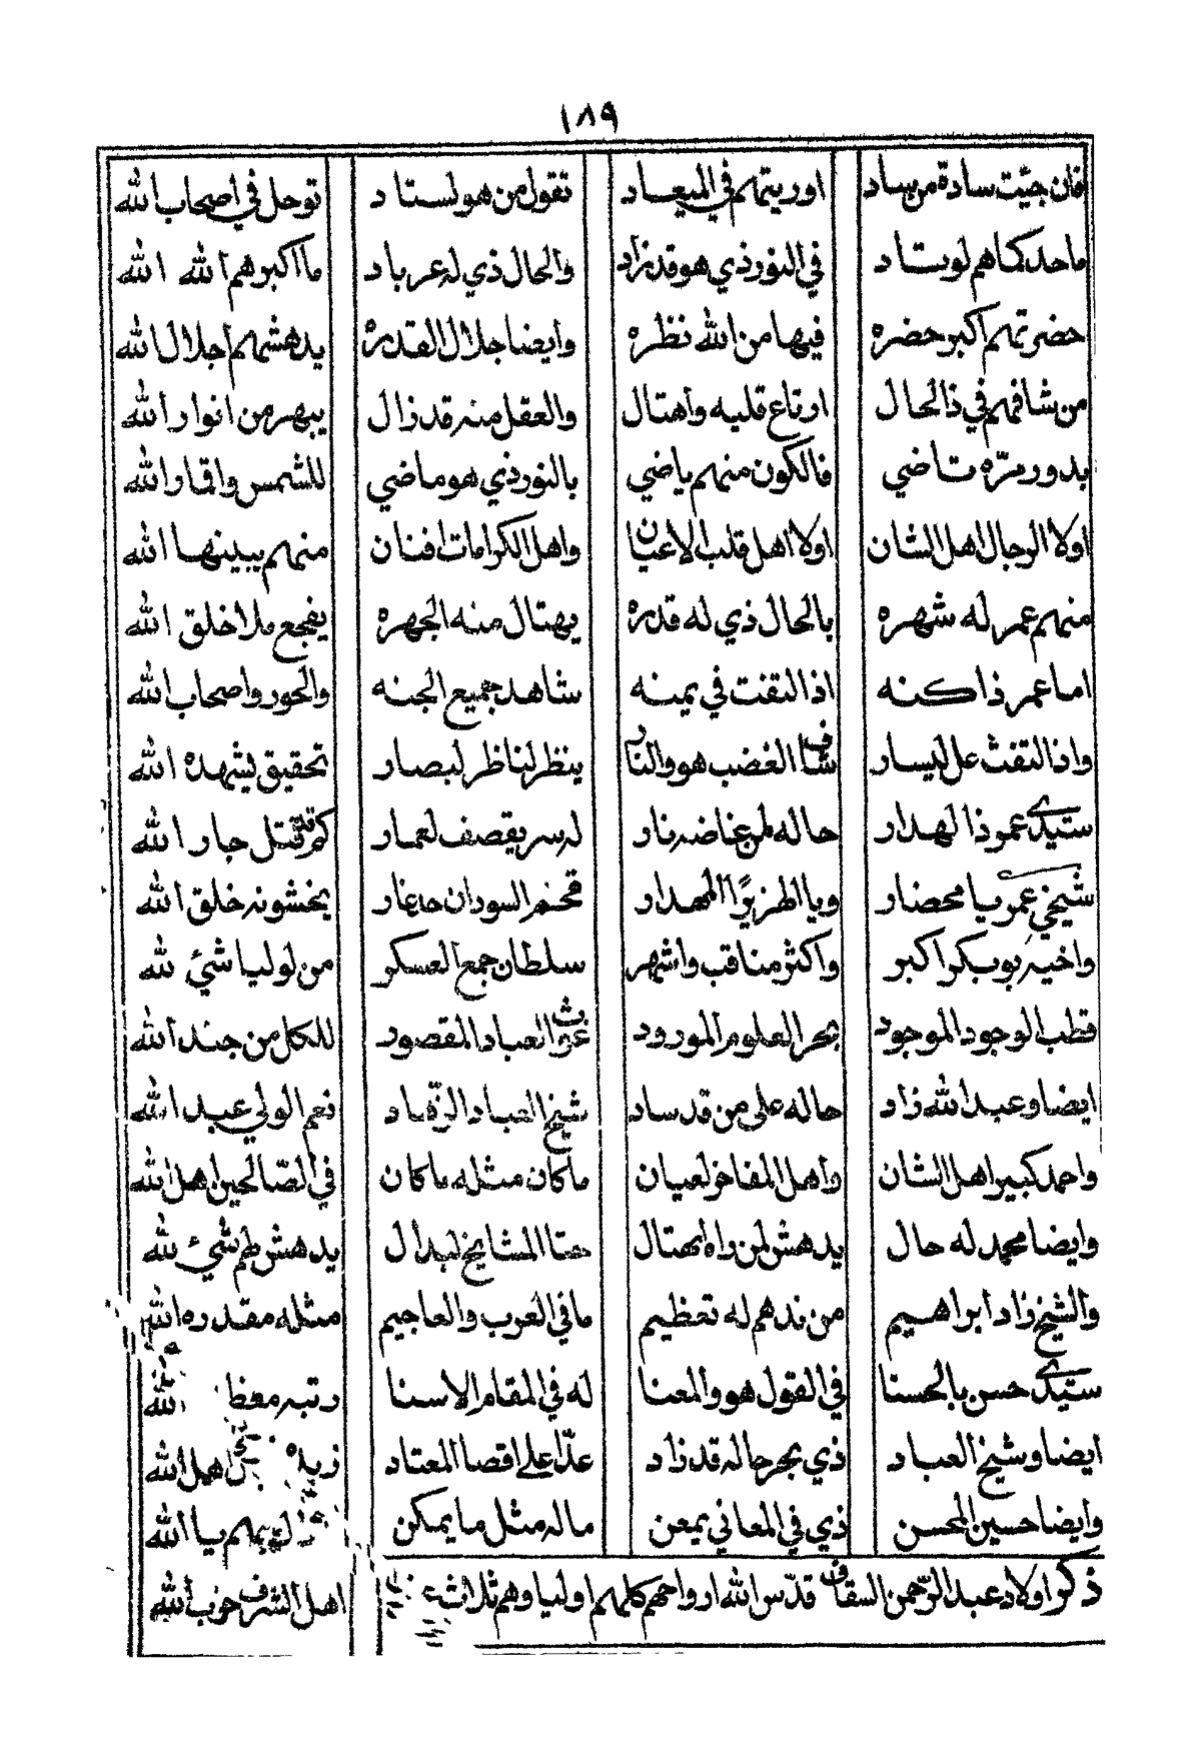 ١٨٩
فان جيت سادة من ساد اوريتهم في الميعاد تقول من هو لستاد توحل في اصحاب الله
ما حد كماهم لوتاد في النور ذي هو قد زاد والحال ذي له عرباد ما اكبرهم الله الله
حضرتهم اكبر حضره فيها من الله نظره وايضا جلال القدره يدهشهم اجلال الله
من شافهم في ذا الحال ارتاع قلبه واهتال والعقل منه قد زال يبهر من انوار الله
بدور مرّه تاضي فالكون منهم ياضي بالنور ذي هو ماضي للشمس واقمار الله
اولا الرجال اهل الشان اولا اهل قلب الاعيان واهل الكرامات افنان منهم يبينها الله
منهم عمر له شهره بالحال ذي له قدره يهتال منه الجهره يفجع ملا خلق الله
اما عمر ذا كنه اذا التفت في يمنه شاهد جميع الجنه والحور واصحاب الله
واذا التفت عل ليسار شاف الغضب هو والنار ينظر لناظر لبصار تحقيق يشهده الله
سيدي عمو ذا الهدار حاله لمن عناضه نار له سر يقصف لعمار كم قد قتل جار الله
شيخي عمر يا محضار ويا الهزبرًا المهدار السودان يخشونه خلق الله
واخيه بوبكر اكبر واكثر مناقب واشهر سلطان جمع العسكر من لوليا شيئ لله
قطب الوجود الموجود بحر العلوم المورود غوث العباد المقصود للكل من جند الله
ايضا وعبد الله زاد حاله على من قد ساد شيخ العباد الزهاد نعم الولي عبد الله
واحمد كبير اهل الشان واهل المفاخر لعيان ما كان مثله ما كان في الصالحين اهل الله
وايضا محمد له حال يدهش لمن راه يهتال حتا المشايخ لبدال يدهش لهم شيئ لله
والشيخ زاد ابراهيم من ندهم له تعظيم ما في العرب والعاجيم مثله مقدره الله
سيدي حسن بالحسنا في القول هو والمعنا له في المقام الاسنا رتبه معظ الله
ايضا وشيخ العباد ذي بحر حاله قد زاد عدّل على اقصا المعتاد اهل الله
وايضا حسين المحسن ذي في المعاني يمعن ماله مثل ما يمكن بهم يا الله
ذكر اولاد عبد الرحمن السقاف قدّس الله ارواحهم كلهم اوليا وهم ثلاث اهل الشرف حوب الله